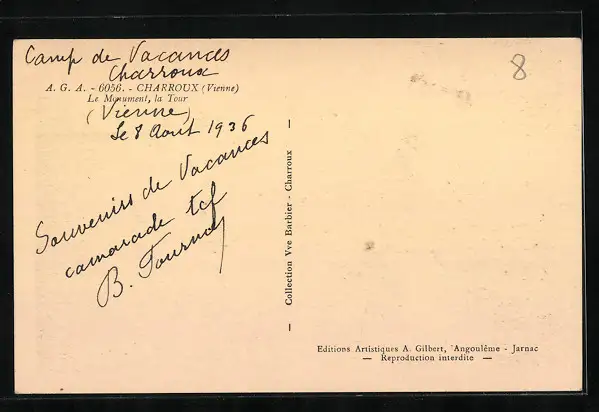 Camp de Vacances
Charroux
A. G. A. - 6056. - CHARROUX (Vienne)
Le Monument, la Tour
(Vienne)
Le 8 Août 1936
Souvenirs de Vacances
camarade tcf
B.
Collection Vve Barbier - Charroux
8
Editions Artistiques A. Gilbert, Angoulême - Jarnac
— Reproduction interdite —